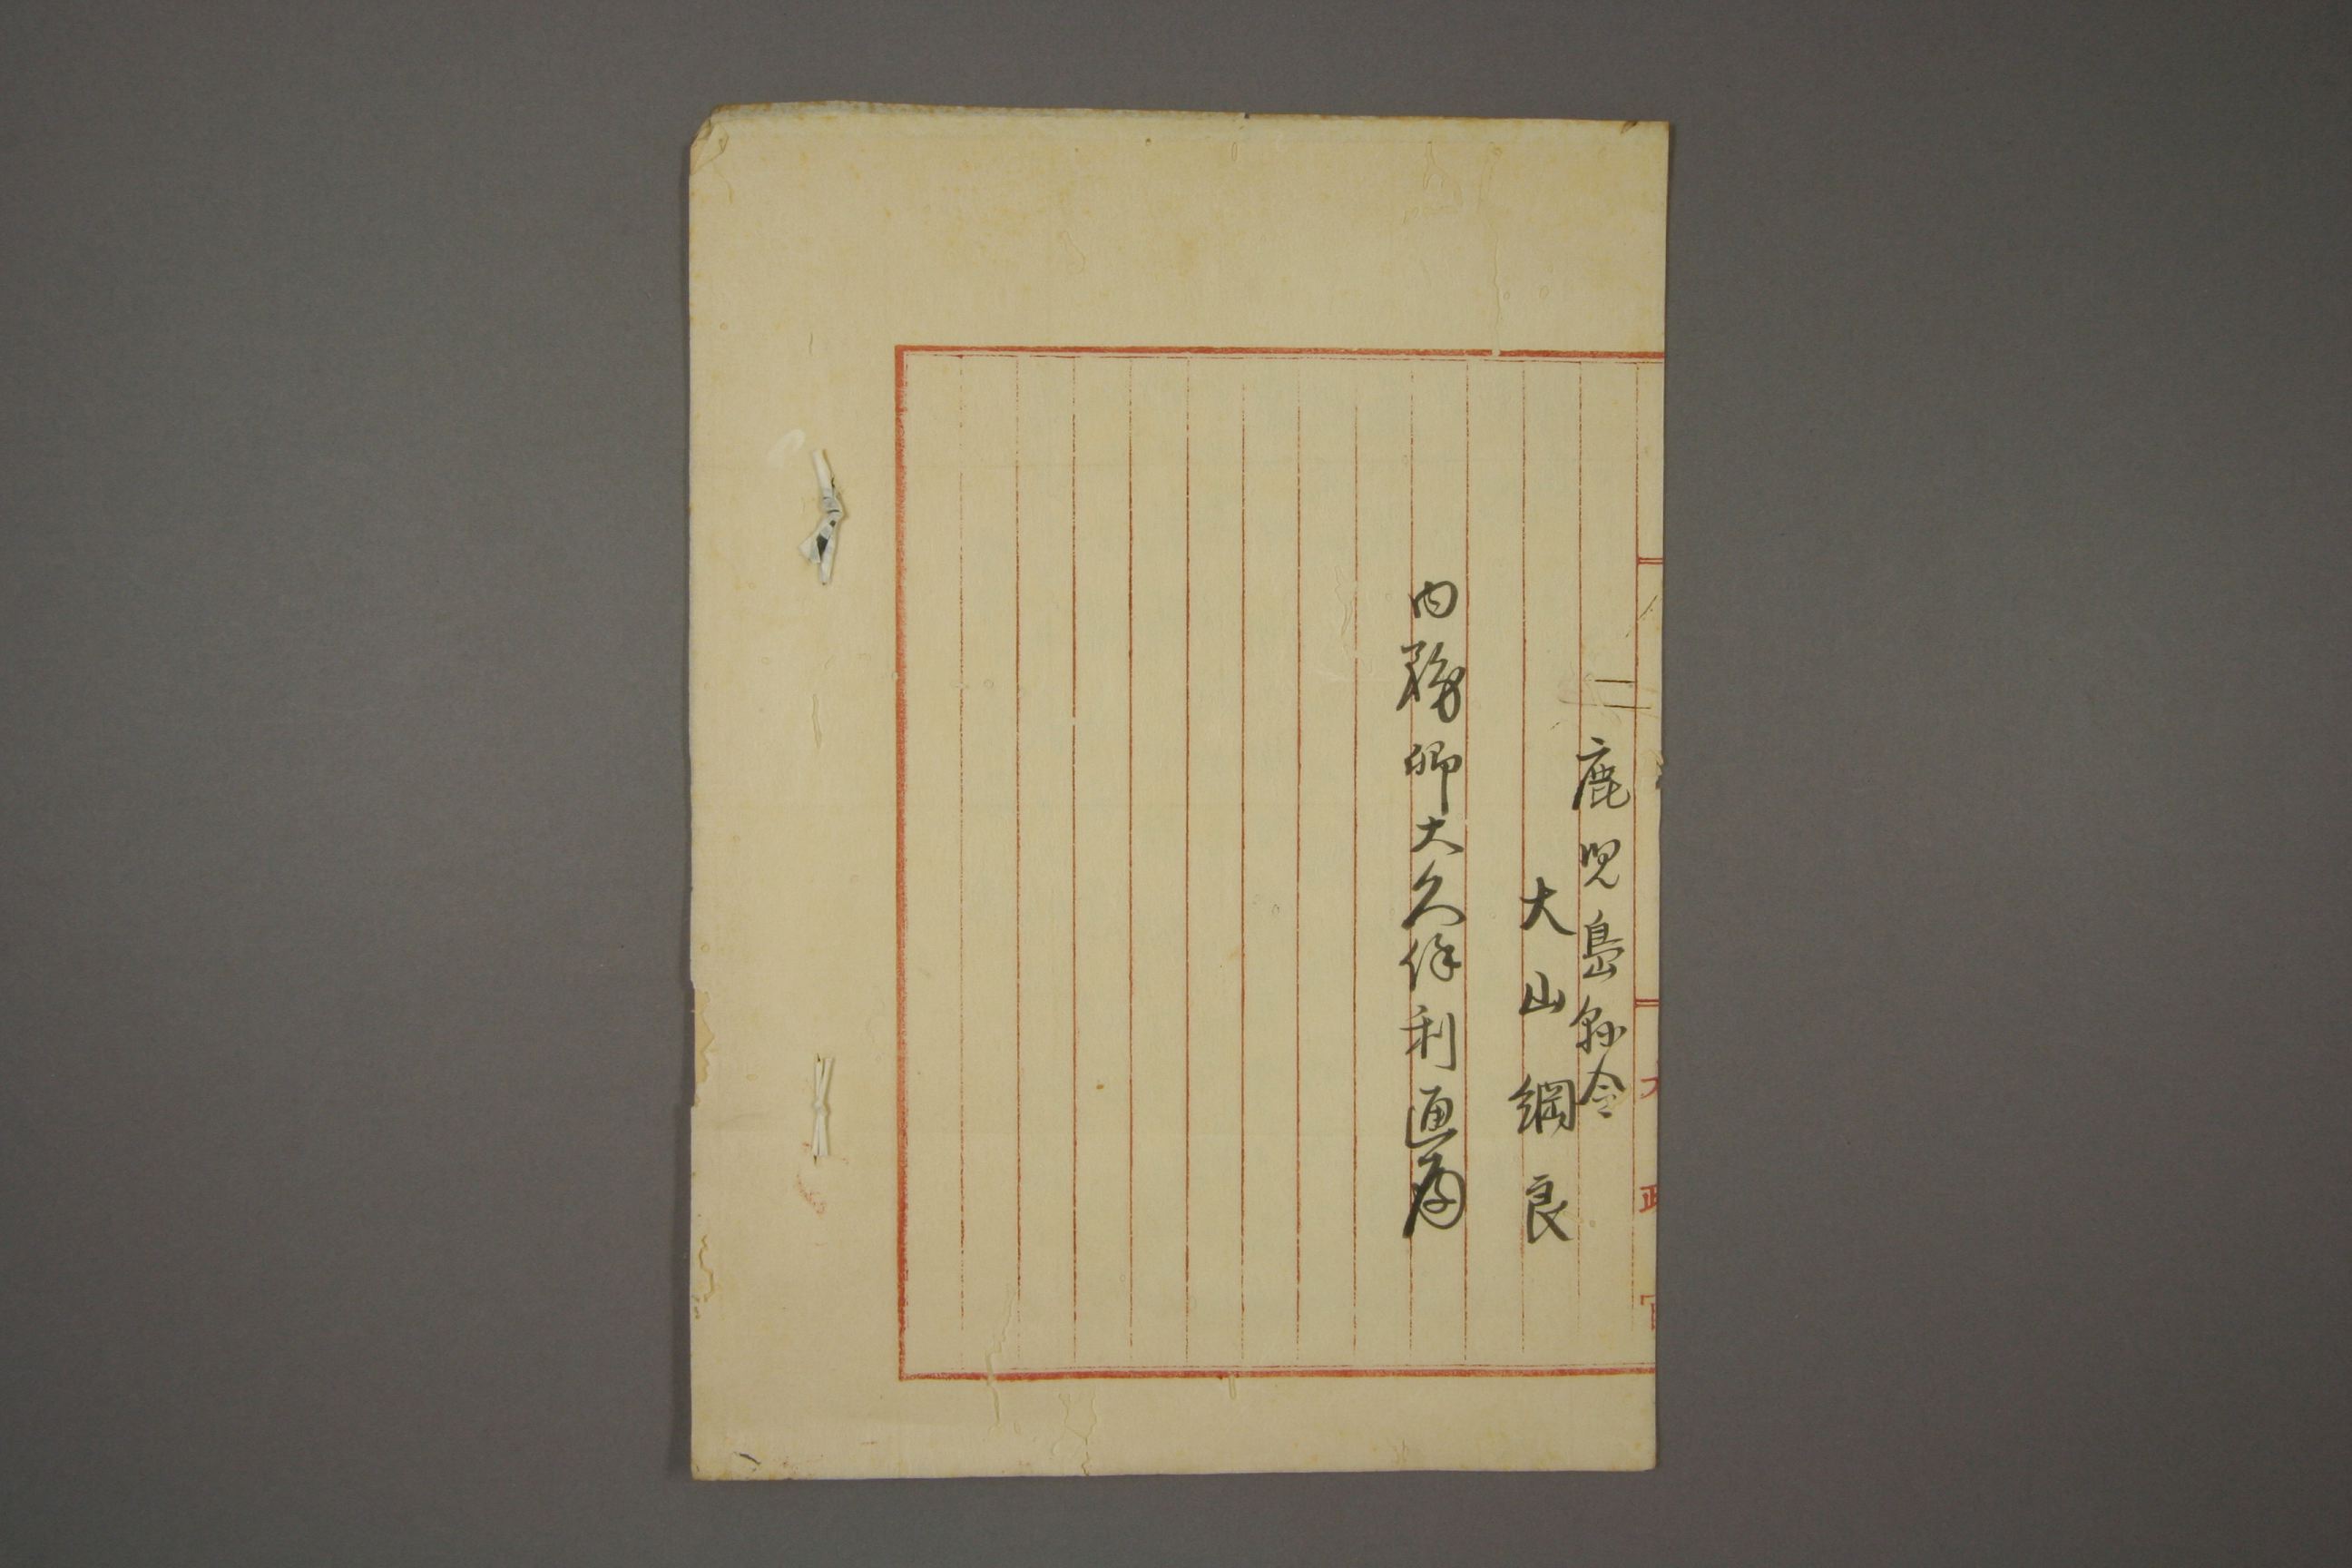 鹿児島縣令
大山綱良
内務卿大久保利通殿
太政官